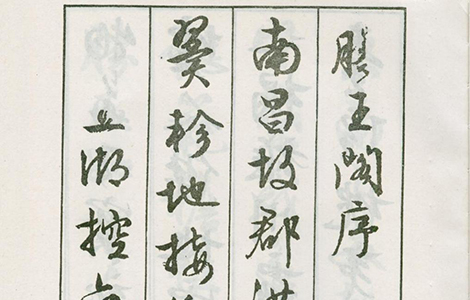 滕王阁序
南昌故郡洪
翼轸地接
五湖控